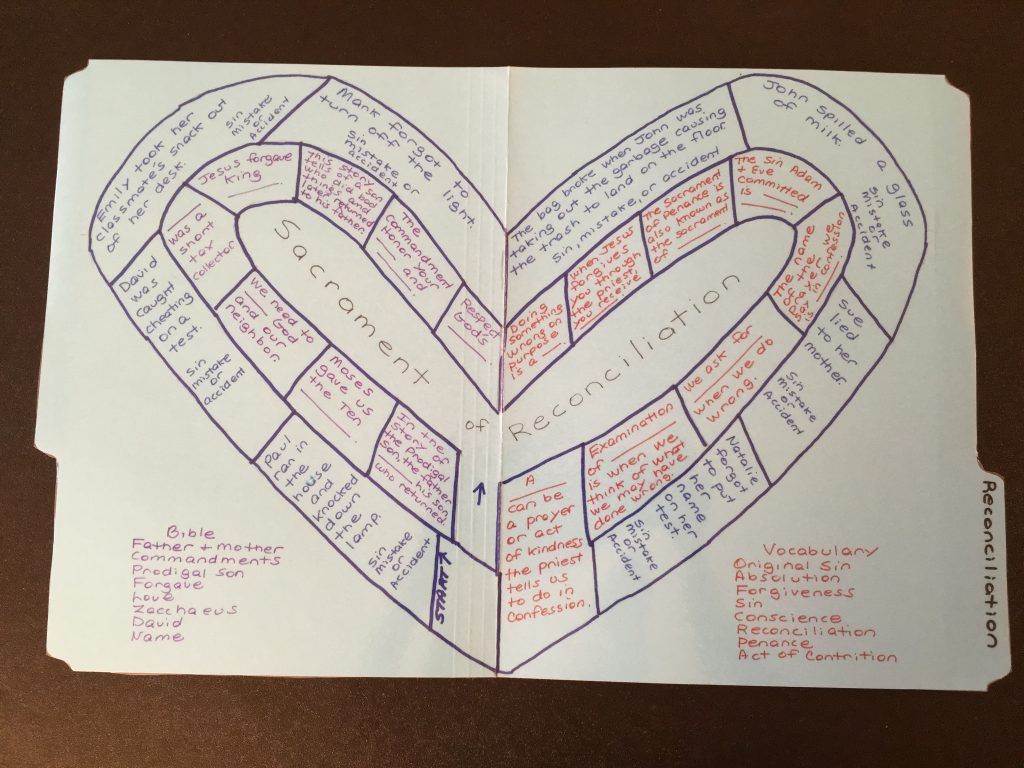 Emily took her
classmate's snack out
of her desk.
sin
mistake
or
Accident
Mark forgot to
turn off the light.
sin
mistake or
accident
David
was
caught
cheating
on a
test.
sin
mistake
or
accident
Paul
ran in
the
house
and
knocked
down
the
lamp.
sin
mistake
or
Accident
START
Jesus forgave
King
This story
tells of a son
who did bad
things and
later returned
to his father.
The
Commandment
Honor your
and
Respect
God's
was a
short
tax
collector
We need to
God
and our
neighbor.
Moses
gave us
the Ten
In the
story of
the Prodigal
son, the father
his son
who returned.
Sacrament
of
Reconciliation
The
bag broke when John was
taking out the garbage causing
the trash to land on the floor.
sin, mistake, or accident
John spilled a glass
of milk.
sin
mistake
or
Accident
Sue
lied
to her
mother
sin
mistake
or
Accident
Natalie
forgot
to put
her
name
on her
test.
sin
mistake
or
Accident
Doing
something
wrong on
purpose
is a
when Jesus
forgives
you through
the priest,
you receive
The Sacrament
of penance is
also known as
the Sacrament
of
The Sin Adam
+ Eve
Committed
is
The name
we
in confession
is
we ask for
when we do
wrong.
Examination
of
is when we
think of what
we may have
done wrong
A
can be
a prayer
or act
of kindness
the priest
tells us
to do in
Confession.
Bible
Father + mother
Commandments
Prodigal Son
Forgave
Love
Zacchaeus
David
Name
Vocabulary
Original Sin
Absolution
Forgiveness
Sin
Conscience
Reconciliation
Penance
Act of Contrition
Reconciliation